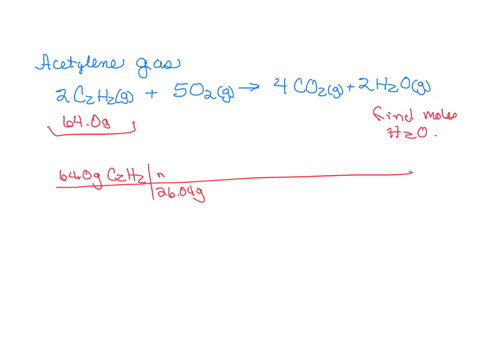 Acetylene gas
2C₂H₂(g) + 5O₂(g) → 4CO₂(g) + 2H₂O(g)
64.0g
find moles
H₂O.
64.0g C₂H₂ | n
26.04g